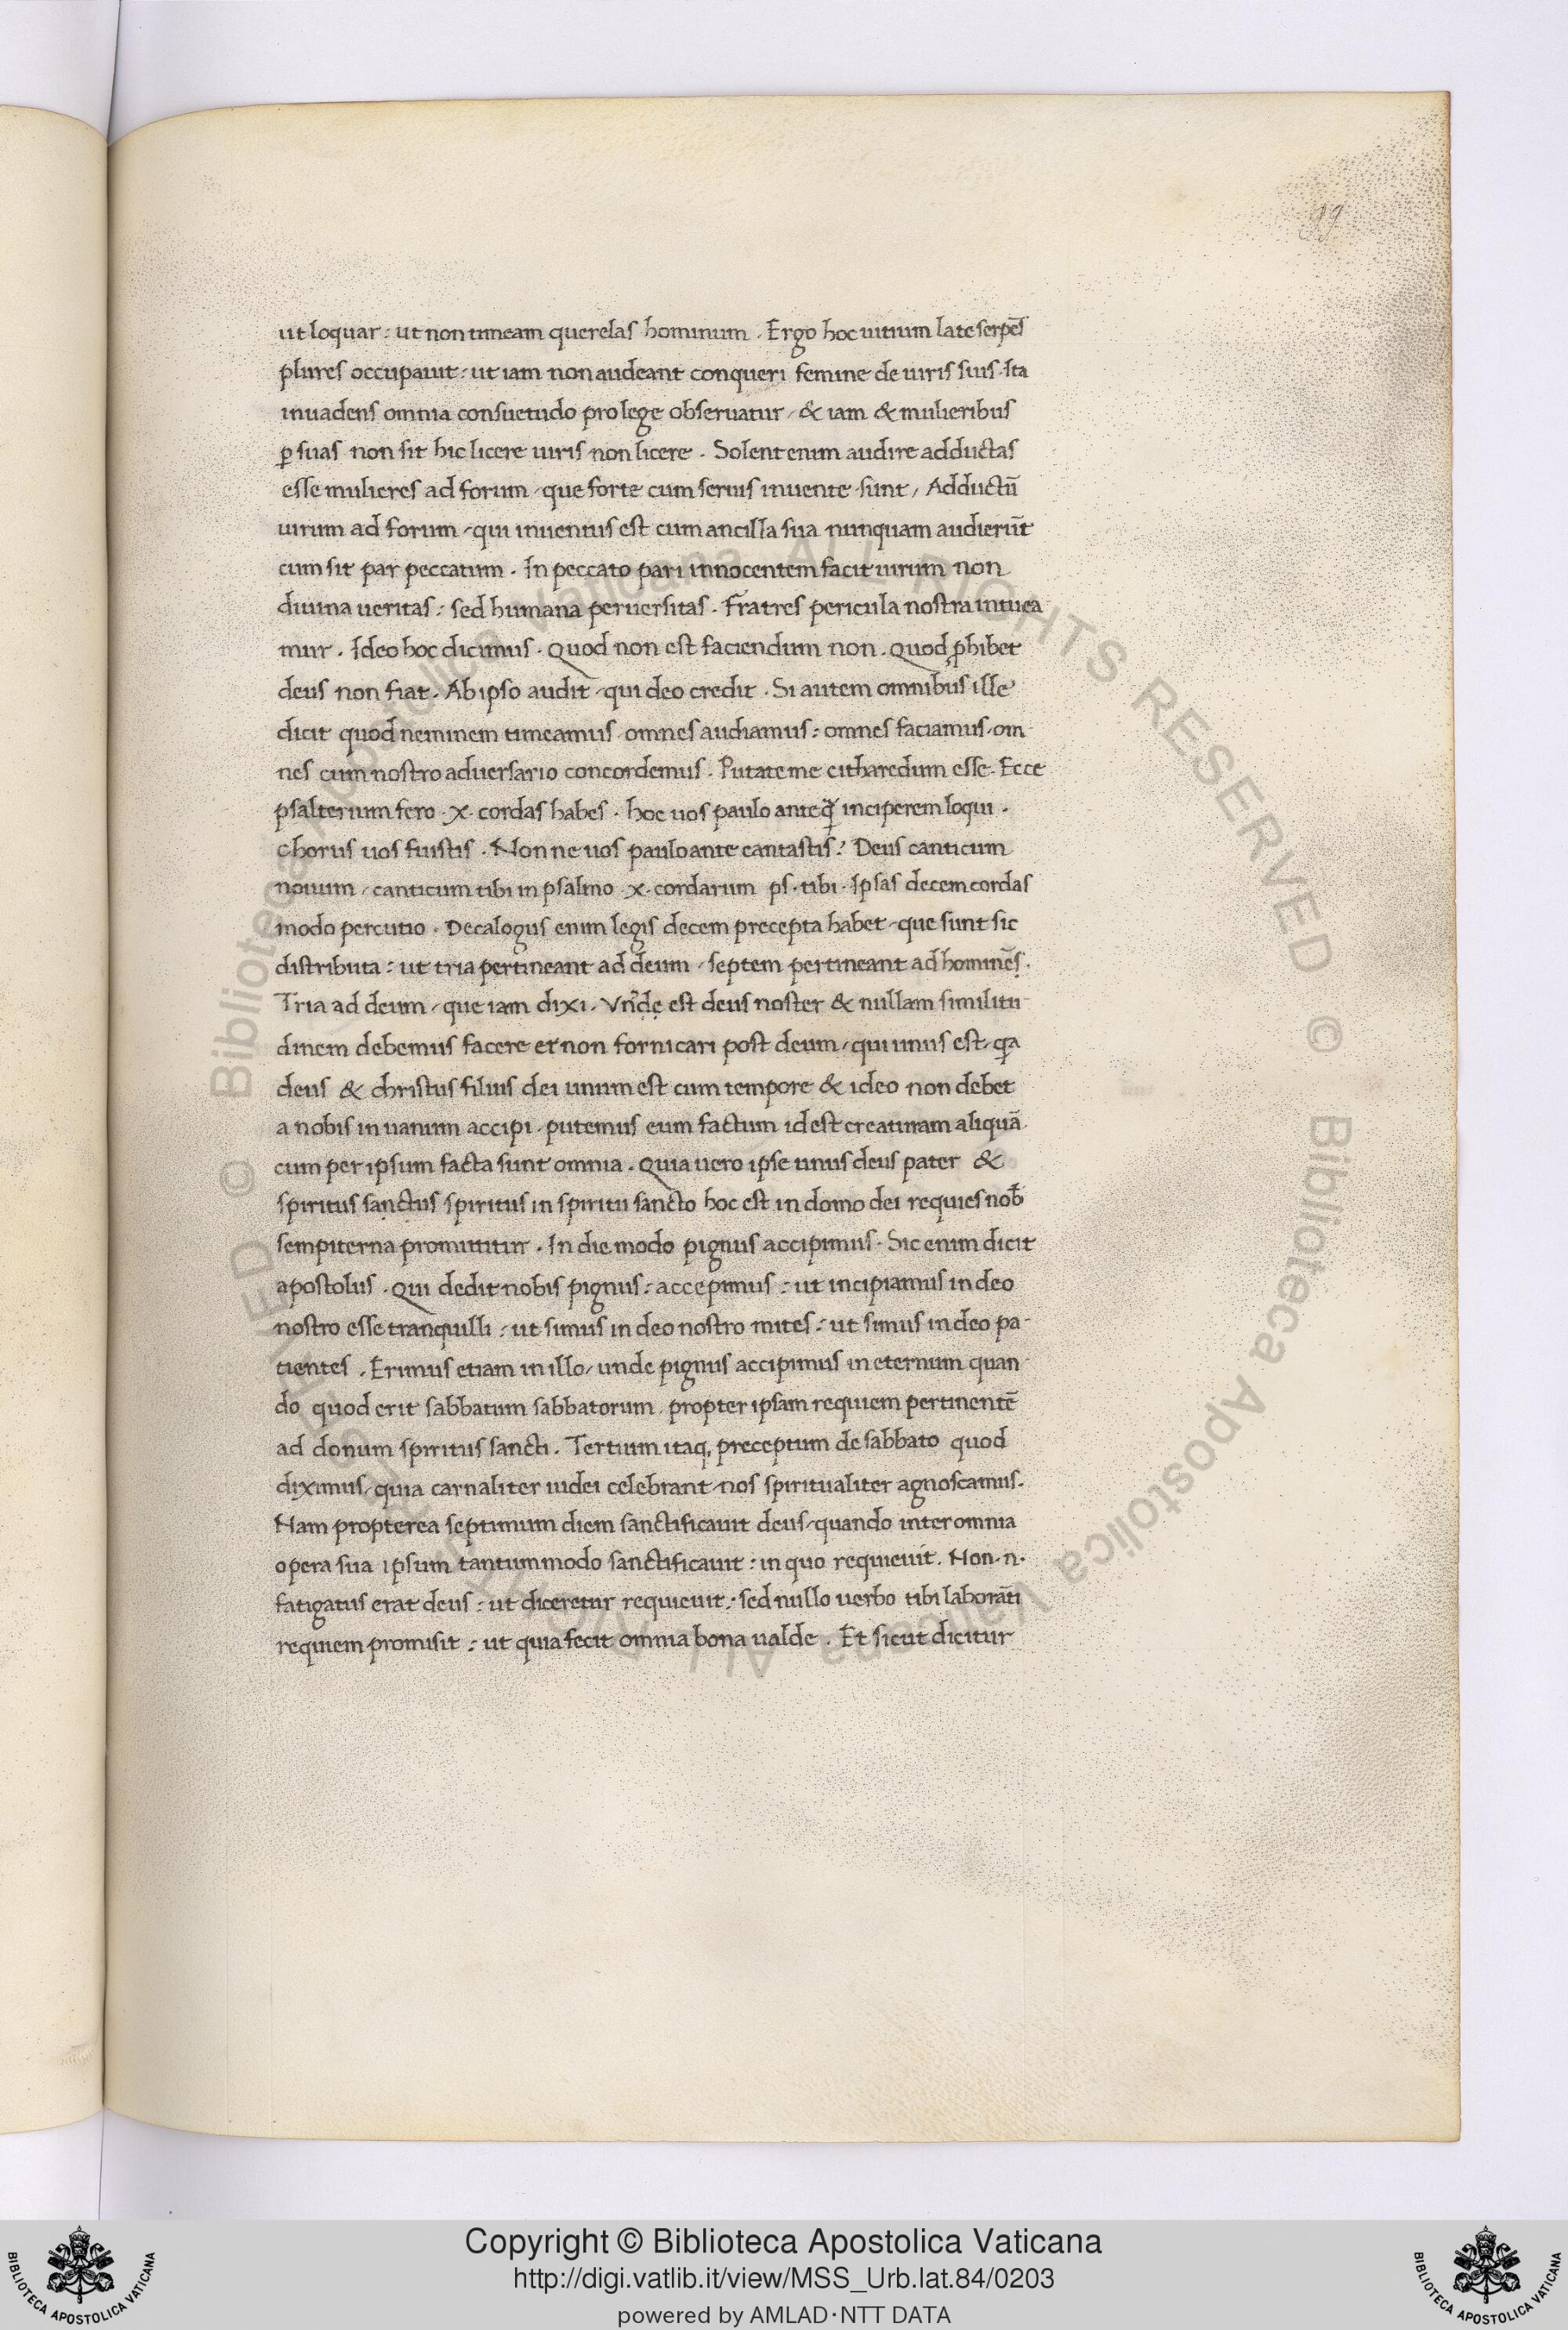 99
ut loquar : ut non timeam querelas hominum . Ergo hoc uitium late serpēs
plures occupauit : ut iam non audeant conqueri femine de uiris suis . Ita
inuadens omnia consuetudo pro lege obseruatur / & iam & mulieribus
ꝑsuas non sit hic licere uiris non licere . Solent enim audire adductas
esse mulieres ad forum / que forte cum seruis inuente sunt / Adductū
uirum ad forum / qui inuentus est cum ancilla sua nunquam audierūt
cum sit par peccatum . In peccato pari innocentem facit uirum non
diuina ueritas : sed humana peruersitas . Fratres pericula nostra intuea
mur . Ideo hoc dicimus . Quod non est faciendum non . Quod ꝓhibet
deus non fiat . Ab ipso audit / qui deo credit . Si autem omnibus ille
dicit quod neminem timeamus omnes audiamus : omnes faciamus / om
nes cum nostro aduersario concordemus . Putate me citharedum esse . Ecce
psalterium fero . x . cordas habes . hoc uos paulo ante q̃ inciperem loqui .
chorus uos fuistis . Non ne uos paulo ante cantastis ? Deus canticum
nouum / canticum tibi in psalmo . x . cordarum ps . tibi . Ipsas decem cordas
modo percutio . Decalogus enim legis decem precepta habet / que sunt sic
distributa : ut tria pertineant ad deum / septem pertineant ad hominēs .
Tria ad deum / que iam dixi . Vn̄de est deus noster & nullam similitu
dinem debemus facere et non fornicari post deum / qui unus est / qa
deus & christus filius dei unum est cum tempore & ideo non debet
a nobis in uanum accipi . putemus eum factum id est creaturam aliquā .
cum per ipsum facta sunt omnia . Quia uero ipse unus deus pater &
spiritus sanctus spiritus in spiritu sancto hoc est in domo dei requies nob̄
sempiterna promittitur . In die modo pignus accipimus . Sic enim dicit
apostolus . Qui dedit nobis pignus : accepimus : ut incipiamus in deo
nostro esse tranquilli : ut simus in deo nostro mites : ut simus in deo pa-
tientes . Erimus etiam in illo / unde pignus accipimus in eternum quan
do quod erit sabbatum sabbatorum . propter ipsam requiem pertinentē
ad donum spiritus sancti . Tertium itaq, preceptum de sabbato quod
diximus / quia carnaliter iudei celebrant / nos spiritualiter agnoscamus .
Nam propterea septimum diem sanctificauit deus / quando inter omnia
opera sua ipsum tantummodo sanctificauit : in quo requieuit . Non . n .
fatigatus erat deus : ut diceretur requieuit : sed nullo uerbo tibi laborāti
requiem promisit : ut quia fecit omnia bona ualde . Et sicut dicitur
Copyright © Biblioteca Apostolica Vaticana
http://digi.vatlib.it/view/MSS_Urb.lat.84/0203
powered by AMLAD·NTT DATA
BIBLIOTECA APOSTOLICA VATICANA
BIBLIOTECA APOSTOLICA VATICANA